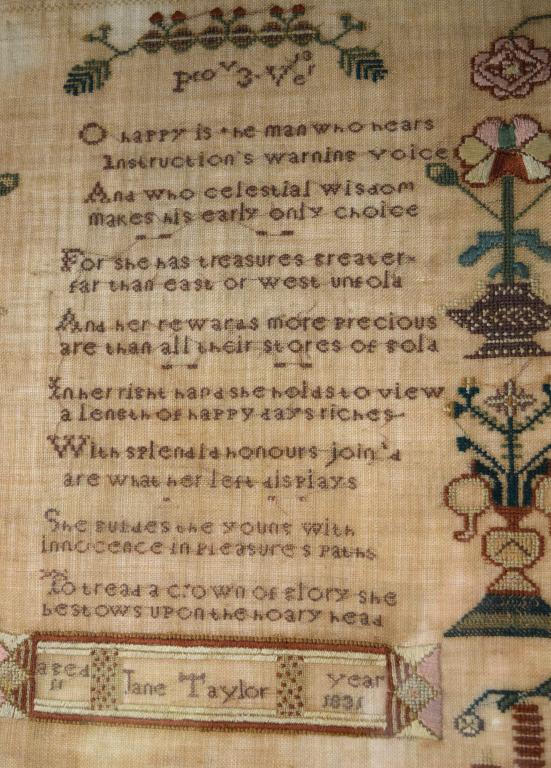 Prov 3. Ver
O happy is the man who hears
Instruction's warning voice
And who celestial wisdom
makes his early only choice
For she has treasures greater
far than east or west unfold
And her rewards more precious
are than all their stores of gold
In her right hand she holds to view
a length of happy days riches
With splendid honours join'd
are what her left displays
She guides the young with
innocence in pleasure's paths
To tread a crown of glory she
bestows upon the hoary head
aged 11 Jane Taylor year 1831